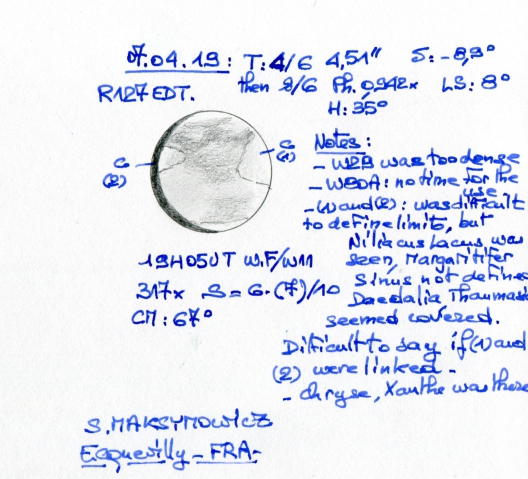 07.04.19: T: 4/6 4,51" S: -8,9°
R127 EDT. then 2/6 Ph. 0,942x LS: 8°
H: 35°
C (2)
C (1)
Notes:
- W2B was too dense
- W80A: no time for the use.
- (1) and (2): was difficult
to define limits, but
Niliacus Lacus was
seen, Margaritifer
Sinus not defined
Daedalia, Thaumasia
seemed covered.
Difficult to say if (1) and
(2) were linked -
- Chryse, Xanthe was there
19H05UT W.F/W11
317x S = 6-(7)/10
CM: 67°
S. MAKSYMOWICZ
Ecquevilly - FRA -